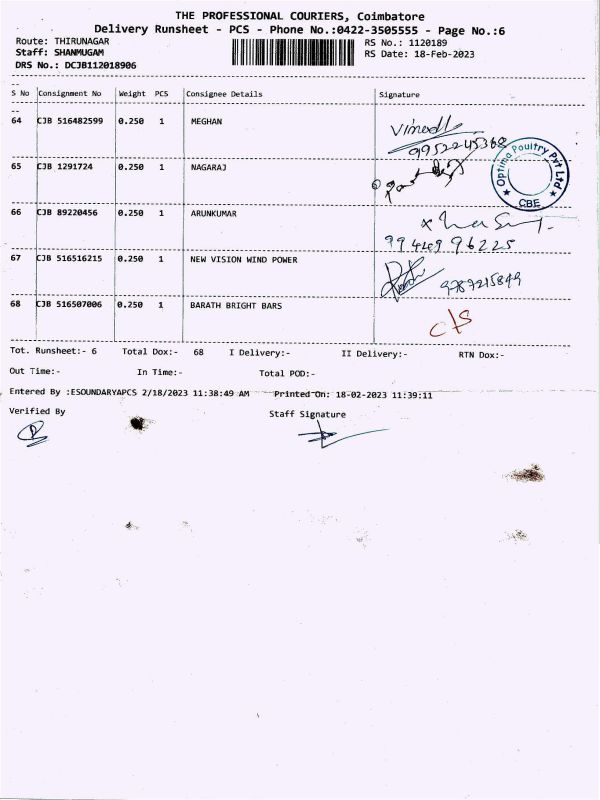 THE PROFESSIONAL COURIERS, Coimbatore
Delivery Runsheet - PCS - Phone No.:0422-3505555 - Page No.:6
Route: THIRUNAGAR RS No.: 1120189
Staff: SHANMUGAM RS Date: 18-Feb-2023
DRS No.: DCJB112018906
S No Consignment No Weight PCS Consignee Details Signature
64 CJB 516482599 0.250 1 MEGHAN
Vinodh
9952245368
65 CJB 1291724 0.250 1 NAGARAJ
Optima Poultry Pvt Ltd
★ CBE ★
66 CJB 89220456 0.250 1 ARUNKUMAR
99449 96225
67 CJB 516516215 0.250 1 NEW VISION WIND POWER
9787215849
68 CJB 516507006 0.250 1 BARATH BRIGHT BARS
c/s
Tot. Runsheet:- 6 Total Dox:- 68 I Delivery:- II Delivery:- RTN Dox:-
Out Time:- In Time:- Total POD:-
Entered By :ESOUNDARYAPCS 2/18/2023 11:38:49 AM Printed On: 18-02-2023 11:39:11
Verified By Staff Signature